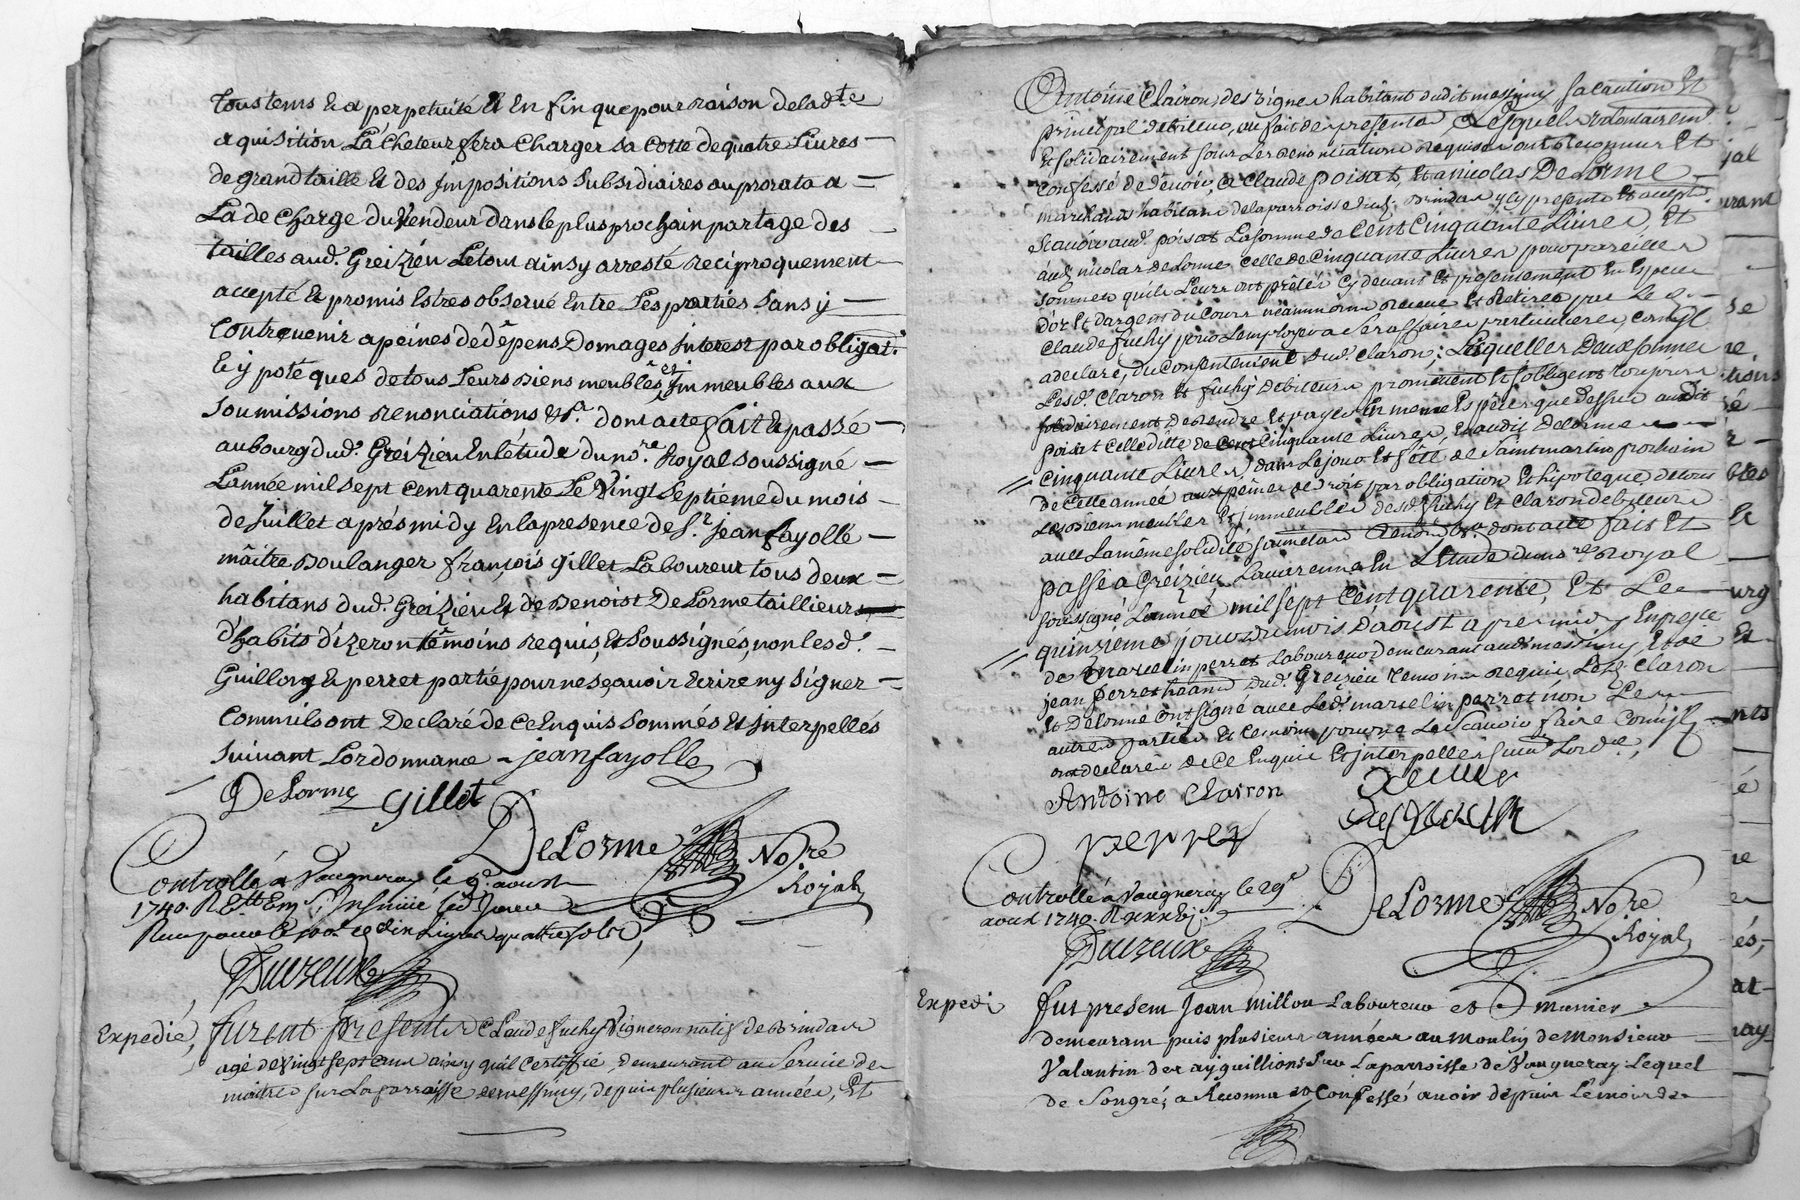 tous tems & a perpetuité Et En fin que pour raison de lad.te
aquisition L'Acheteur fera Charger sa Cotte de quatre Livres
de grand taille & des Jmpositions Subsidiaires au prorata a
La de Charge du Vendeur dans le plus prochain partage des
tailles aud. Greizieu Le tout ainsy arresté reciproquement
accepté & promis Estre observé Entre Les parties Sans y
Contrevenir a peines de dépens Domages interest par obligat.
& ypotéques de tous Leurs Biens meublés et Jmmeubles aux
Soumissions renonciations &c.a dont acte fait & passé
au bourg dud. Greizieu En létude du no.re Royal Soussigné
L'année mil sept cent quarente Le Vingt Septiéme du mois
de Juillet aprés midy En la presence de S.r Jean fayolle
maitre Boulanger françois gillet Laboureur tous deux
habitans dud. Greizieu & de Benoist DeLorme taillieur
d'habits d'izeron témoins requis, & Soussignés, non les d.
Guillon & perret partie pour ne sçavoir Ecrire ny Signer
Comm'ils ont Declaré de Ce Enquis Sommés Et Jnterpellés
Suivant Lordonnance jean fayolle
DeLorme gillet
DeLorme No.re Royal
Controllé a Vaugneray le 9.e aoust
1740. R
quatre sols
Duereux
Expedié, furent Presents Claude fuchy Vigneron natif de Brindas
agé de vingt sept ans ainsy quil Certiffie, demeurant au Service de
maitres sur La parroisse de messimy, depuis plusieurs années, Et
Antoine Clairon, des Vigner habitant dudit messimy sa caution Et
principal debiteur, au fait des presentes, Lesquels volontairem.
Et solidairement sous Les renonciations requises ont reconnu Et
Confessé de devoir, a Claude poisat, Et a nicolas DeLorme
marchands habitans de la parroisse dud. Brindas icy presents Et accept.
Scavoir aud. poisat La somme de Cent Cinquante Livres, Et
aud. nicolas de Lorme Celle de Cinquante Livres pour pareilles
Sommes quils Leurs ont prêtés Cy devant Et presentement En Espece
d'or Et d'argent du Cours Recue Et Retirée par Le d.
Claude fuchy pour L'employer a Ses affaires particulieres, Comm'il
a declaré, du Consentement dud. Claron; Lesquelles Deux sommes
Les d. Claron Et fuchy Debiteurs promettent Et s'obligent toujours
solidairement de rendre Et payer En meme Especes que dessus audit
poisat Celle dite de Cent Cinquante Livres, Et audit Delorme
Cinquante Livres, dans Le jour Et féte de Saint martin prochain
de Cette année aux peines de droit par obligation Et hipoteque de tous
Les biens meubles Et Jmmeubles desd. fuchy Et Claron debiteurs
avec La même solidité &c.a dont acte fait Et
passé a Greizieu Lavarenne En L'étude du no.re Royal
soussigné L'année mil sept Cent quarente, Et Le
quinzieme jour du mois D'aoust aprés midy En presence
de marcelin perret Laboureur demeurant audit messimy, Et de
jean ferret dud. Greizieu temoins requis, Led. Claron
Et Delorme ont signé avec Led. marcelin perret non Les
autres parties Et temoin pour ne Le Scavoir faire Comm'ils
ont declarés de Ce Enquis Et jnterpellés Suiv.t Lord.ce
Antoine Clairon
perret
DeLorme No.re Royal
Controllé a Vaugneray le 29.e
aoust 1740. R
Duereux
Expedi fut present Jean Millon Laboureur et Munier
demeurant puis plusieurs années au moulin de Monsieur
Valantin des ayguillions Sur La parroisse de Vaugneray Lequel
de Son gré, a Reconnu et Confessé avoir depuis Le mois de